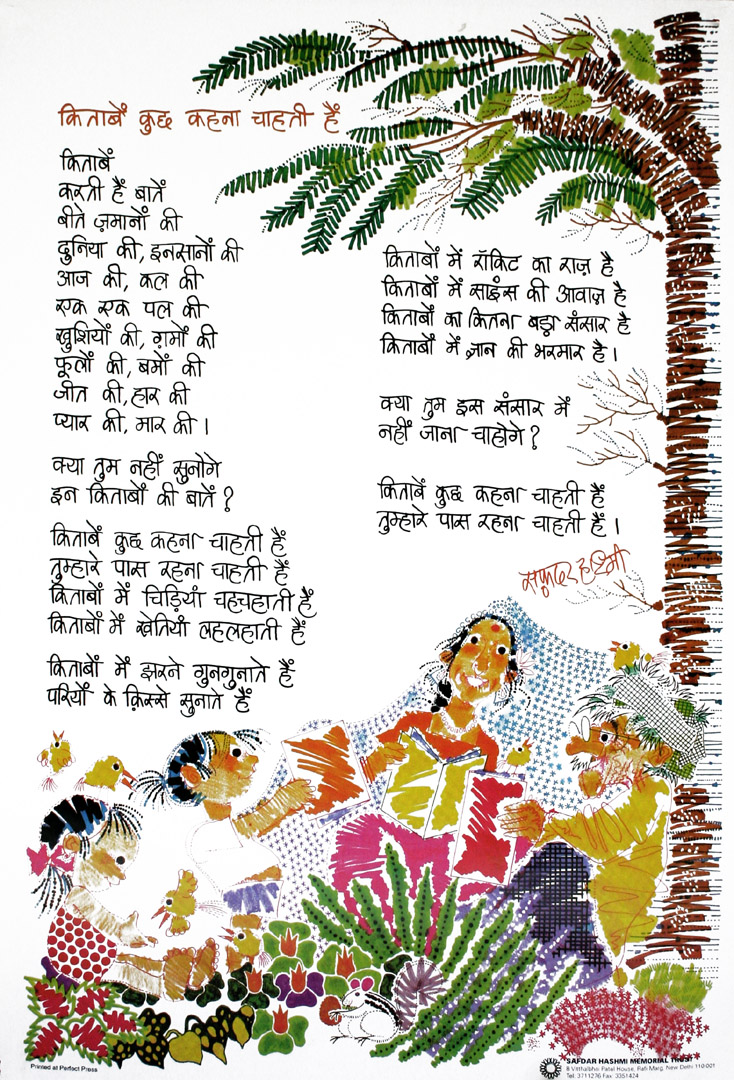 किताबें कुछ कहना चाहती हैं
किताबें
करती हैं बातें
बीते ज़मानों की
दुनिया की, इनसानों की
आज की, कल की
एक एक पल की
खुशियों की, ग़मों की
फूलों की, बमों की
जीत की, हार की
प्यार की, मार की ।
क्या तुम नहीं सुनोगे
इन किताबों की बातें ?
किताबें कुछ कहना चाहती हैं
तुम्हारे पास रहना चाहती हैं
किताबों में चिड़ियां चहचहाती हैं
किताबों में खेतियां लहलहाती हैं
किताबों में झरने गुनगुनाते हैं
परियों के क़िस्से सुनाते हैं
किताबों में रॉकिट का राज़ है
किताबों में साइंस की आवाज़ है
किताबों का कितना बड़ा संसार है
किताबों में ज्ञान की भरमार है ।
क्या तुम इस संसार में
नहीं जाना चाहोगे ?
किताबें कुछ कहना चाहती हैं
तुम्हारे पास रहना चाहती हैं ।
सफ़दर हाश्मी
Printed at Perfect Press
SAFDAR HASHMI MEMORIAL TRUST
8 Vitthalbhai Patel House, Rafi Marg, New Delhi 110 001
Tel. 3711276 Fax 3351424